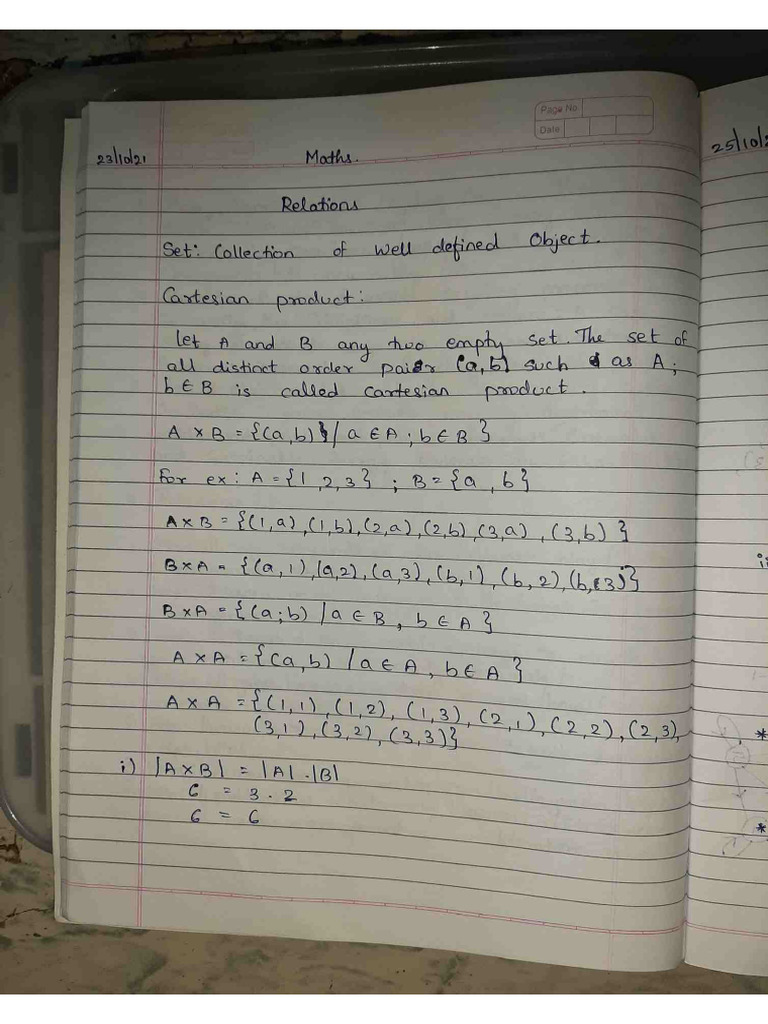 Page No
Date
23/10/21 Maths.
25/10/2
Relations
Set: Collection of well defined Object.
Cartesian product:
let A and B any two empty set. The set of
all distinct order pair (a,b) such as A;
b ∈ B is called Cartesian product.
A × B = {(a,b) / a ∈ A ; b ∈ B }
For ex: A = {1,2,3} ; B = {a , b}
A×B = {(1,a),(1,b),(2,a),(2,b),(3,a) , (3,b) }
B×A = {(a,1),(a,2),(a,3),(b,1),(b,2),(b,3)}
B×A = {(a;b) / a ∈ B , b ∈ A }
A × A = {(a,b) / a ∈ A , b ∈ A }
A × A = {(1,1) , (1,2), (1,3), (2,1), (2,2), (2,3),
(3,1), (3,2), (3,3)}
i) |A×B| = |A| . |B|
6 = 3 . 2
6 = 6
*
*